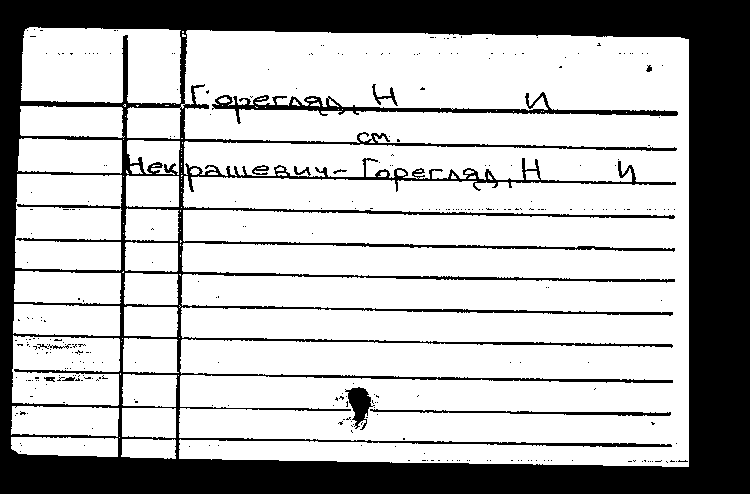 Горегляд, Н И
см.
Некрашевич- Горегляд, Н И